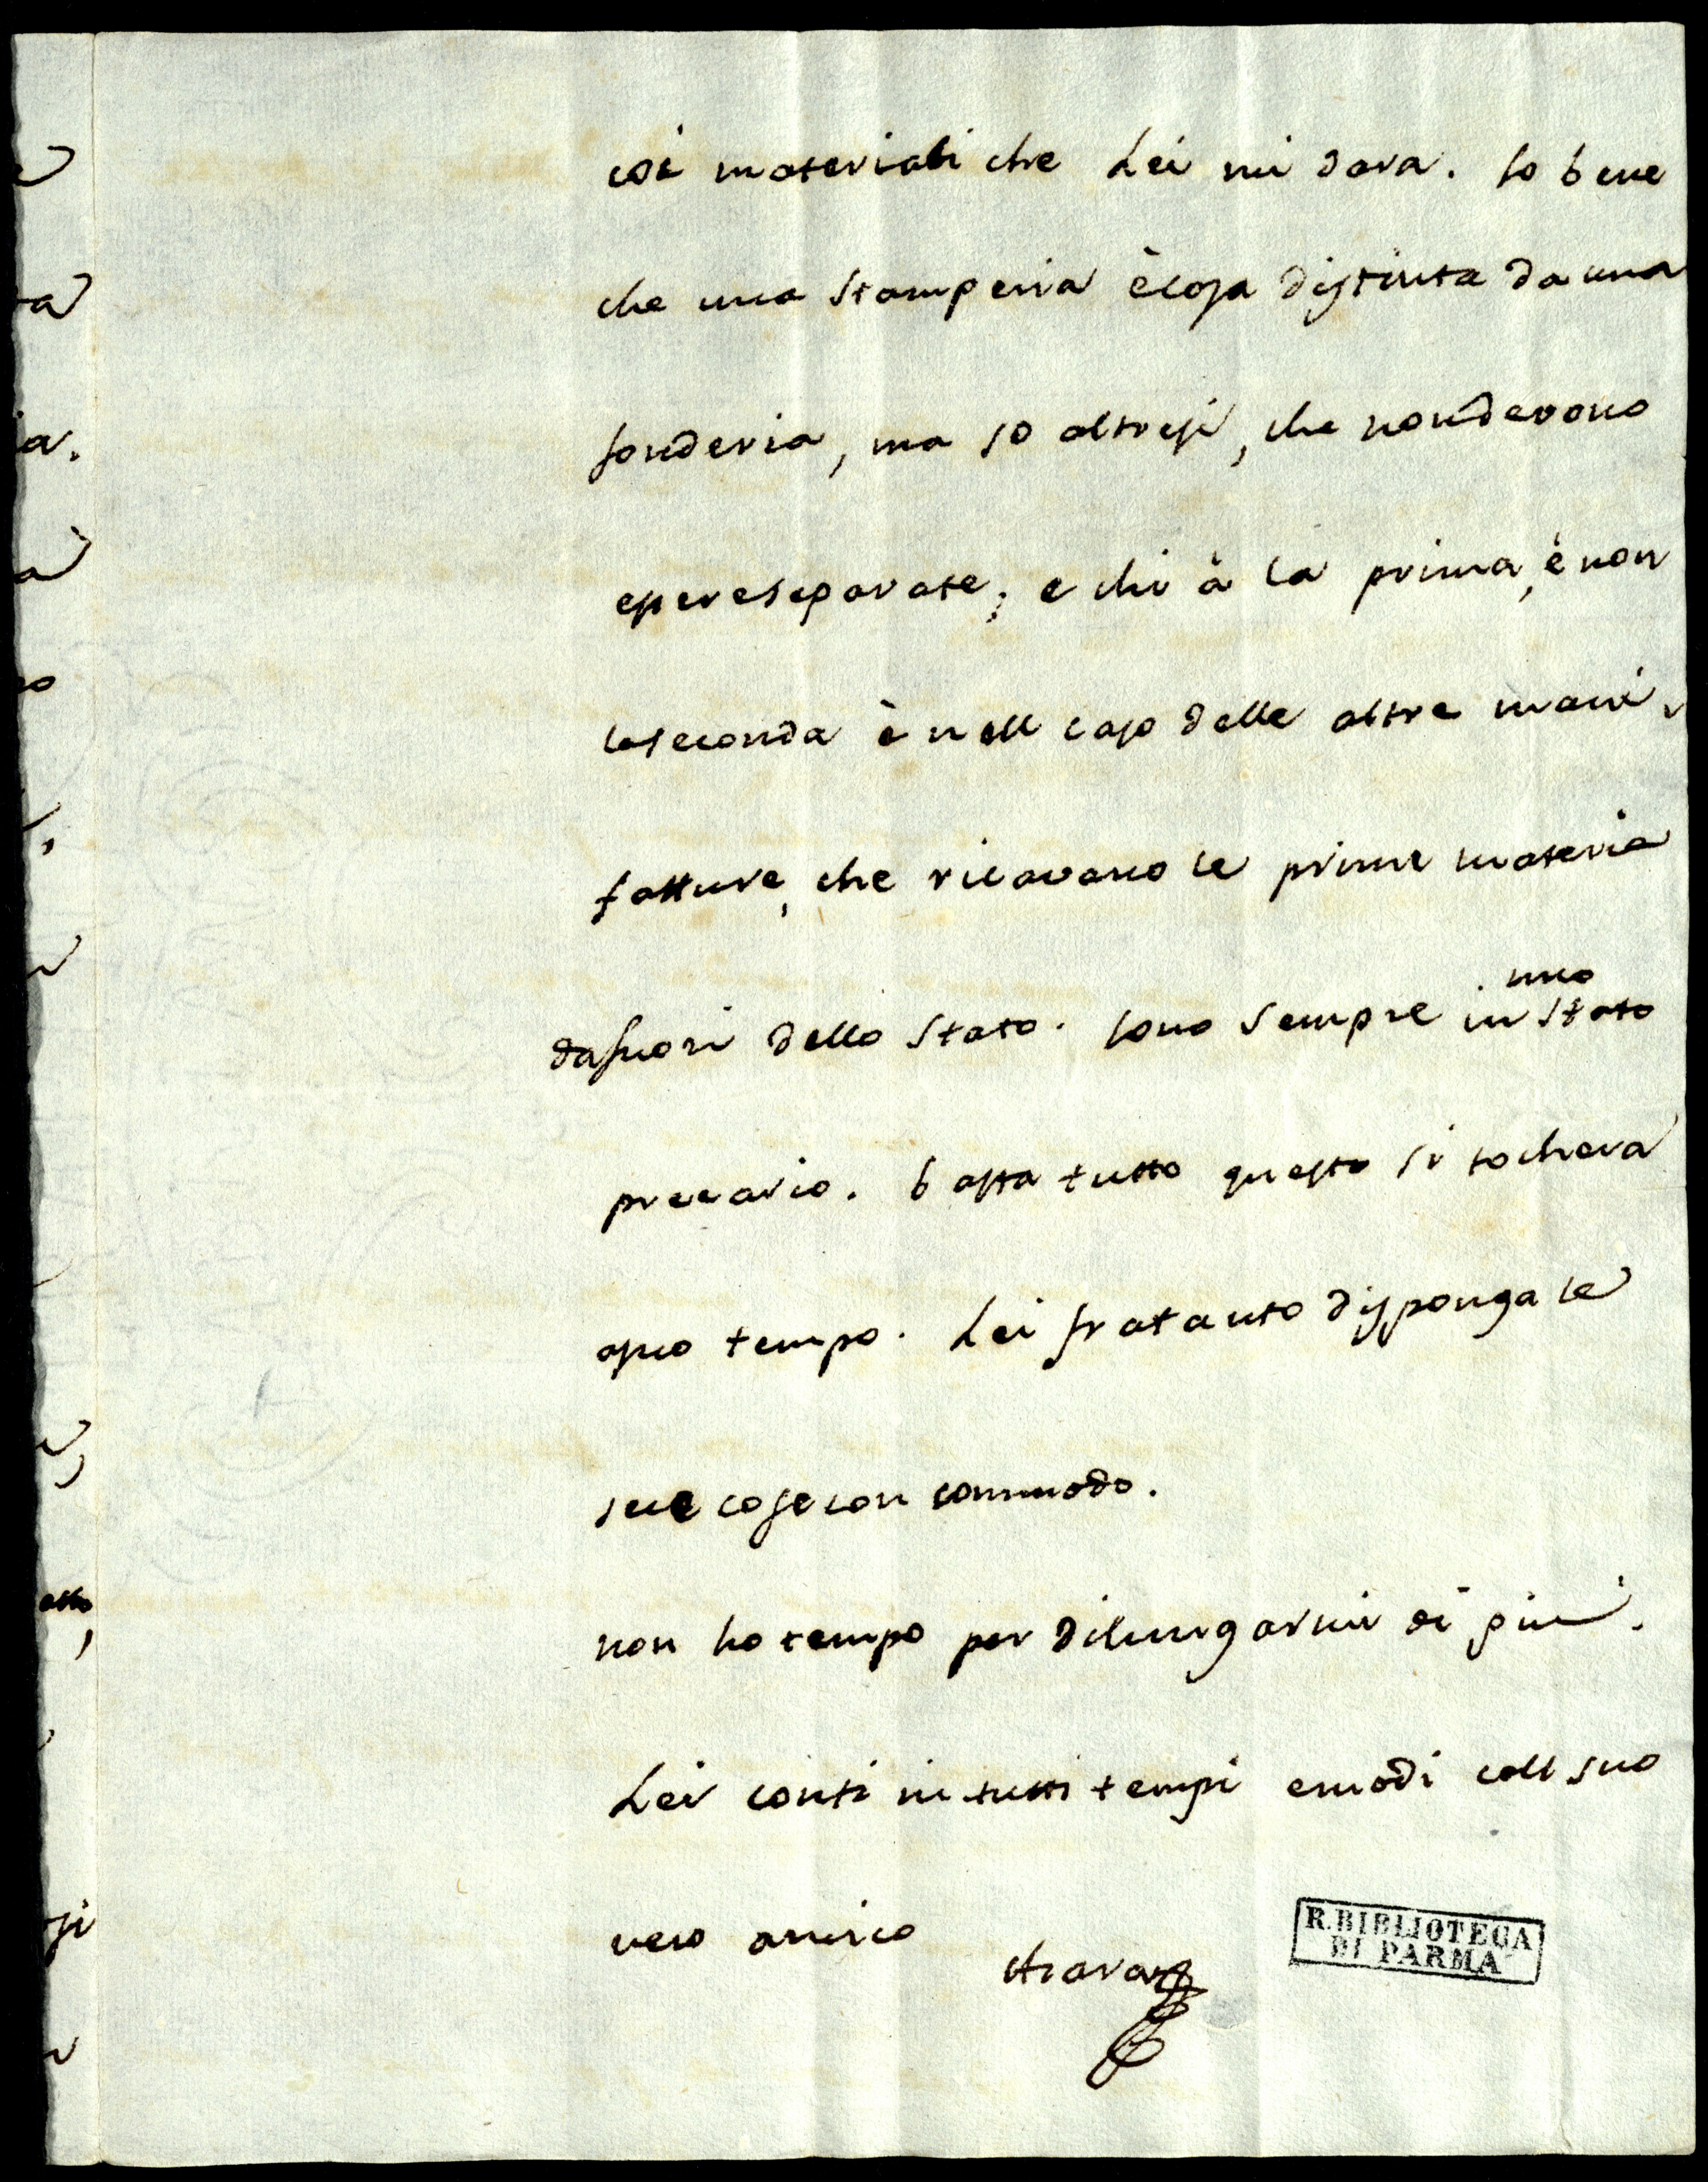 coi materiali che Lei mi dara. so bene
che una stamperia è cosa distinta da una
fonderia, ma so altresi, che non devono
essere separate; e chi à la prima, è non
la seconda è nell caso delle altre mani,
fatture, che ricavano le prime materie
da fuori dello stato. sono sempre in uno stato
precario. basta tutto questo si tochera
a suo tempo. Lei fratanto disponga le
sue cose con commodo.
non ho tempo per dilungarmi di più.
Lei conti in tutti tempi e modi coll suo
vero amico
R. BIBLIOTECA
DI PARMA